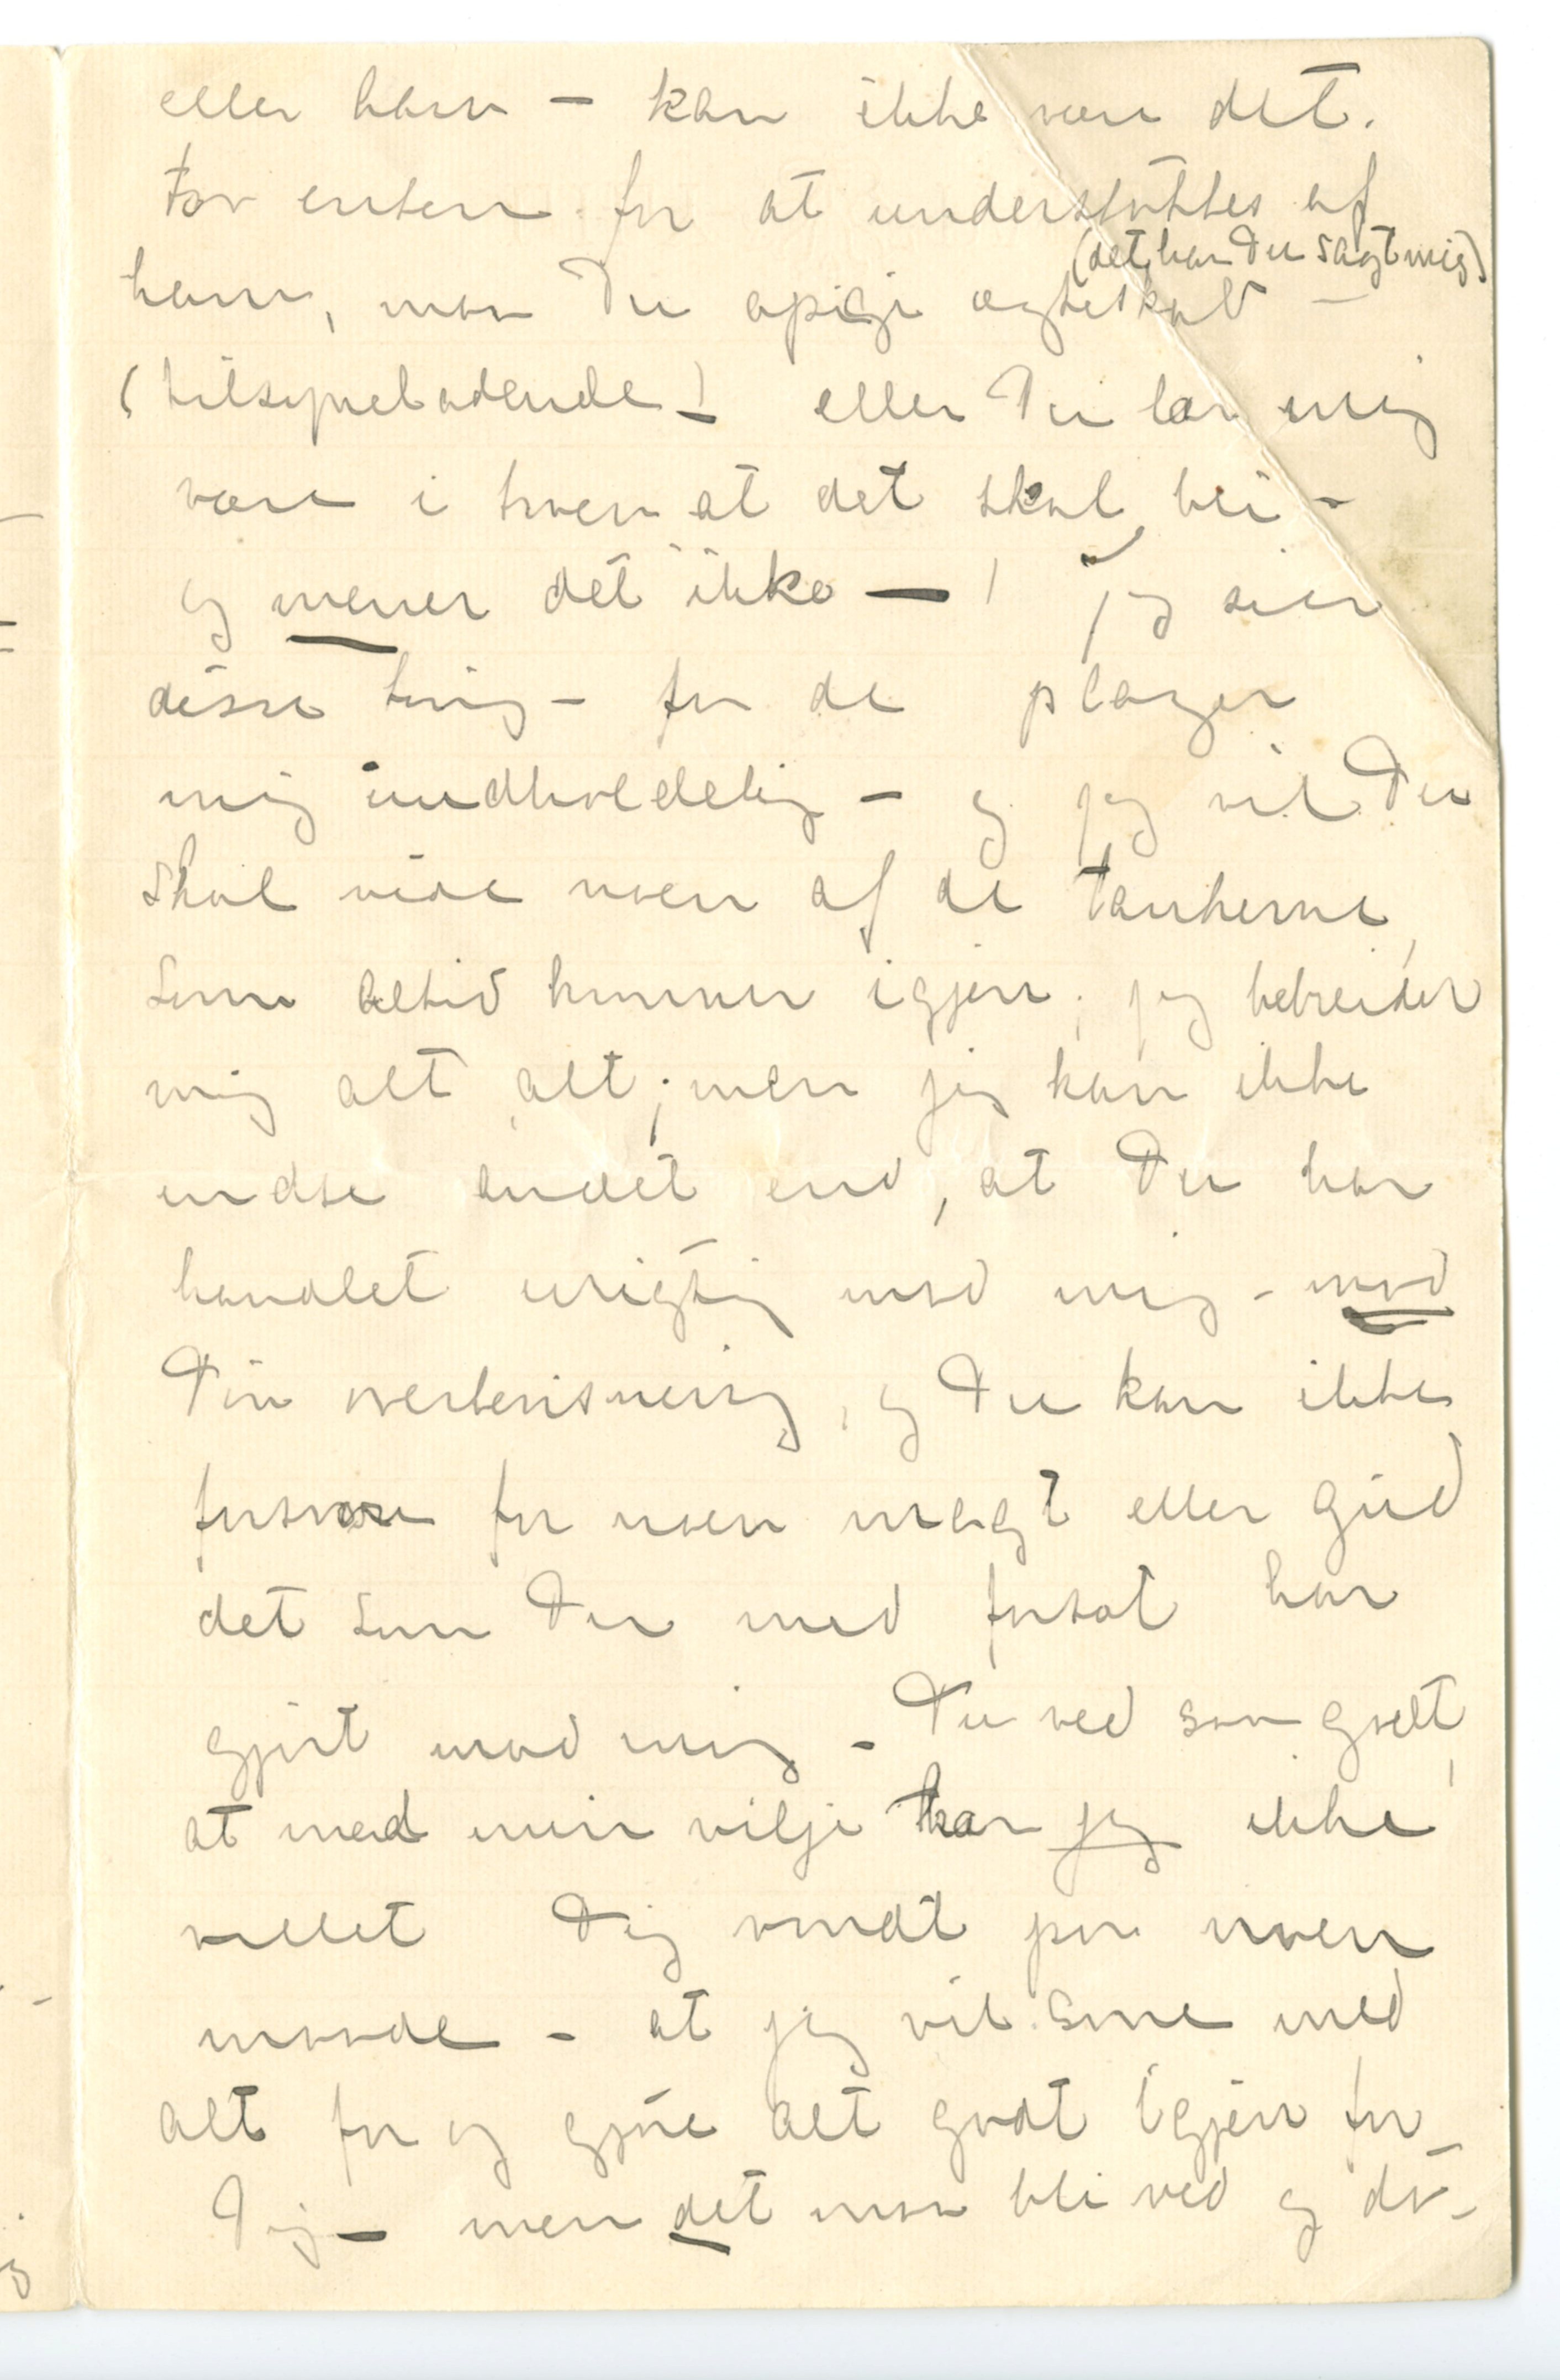 eller ham – kan ikke være det.
For enten for at understøttes af
(det har Du sagt mig)
ham, maa Du opigi ægteskab –
(tilsyneladende) – eller Du lar mig
være i troen at det skal bli –
og mener det ikke – ! Jeg sier
disse ting – for de plager
mig uudholdelig – og jeg vil Du
skal vide noen af de tankerne,
som altid kommer igjen; jeg bebreider
mig alt, alt; men jeg kan ikke
indse andet end, at Du har
handlet urigtig mod mig – mod
Din overbevisning, og Du kan ikke
forsvare for noen magt eller gud
det som Du med forsæt har
gjort mod mig – Du ved saa godt,
at med min vilje har jeg ikke
villet Dig vondt paa noen
maade – at jeg vil sone med
alt for og gjøre alt godt igjen for
Dig – men det maa bli ved og dø –